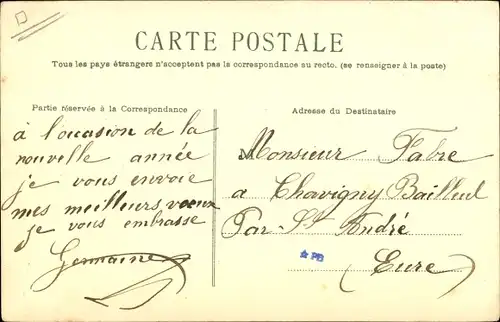 CARTE POSTALE
Tous les pays étrangers n'acceptent pas la correspondance au recto. (se renseigner à la poste)
Partie réservée à la Correspondance
Adresse du Destinataire
à l'occasion de la
nouvelle année
je vous envoie
mes meilleurs voeux
je vous embrasse
Germaine
Monsieur Fabre
a Chavigny Bailleul
Par St André
(Eure)
PB